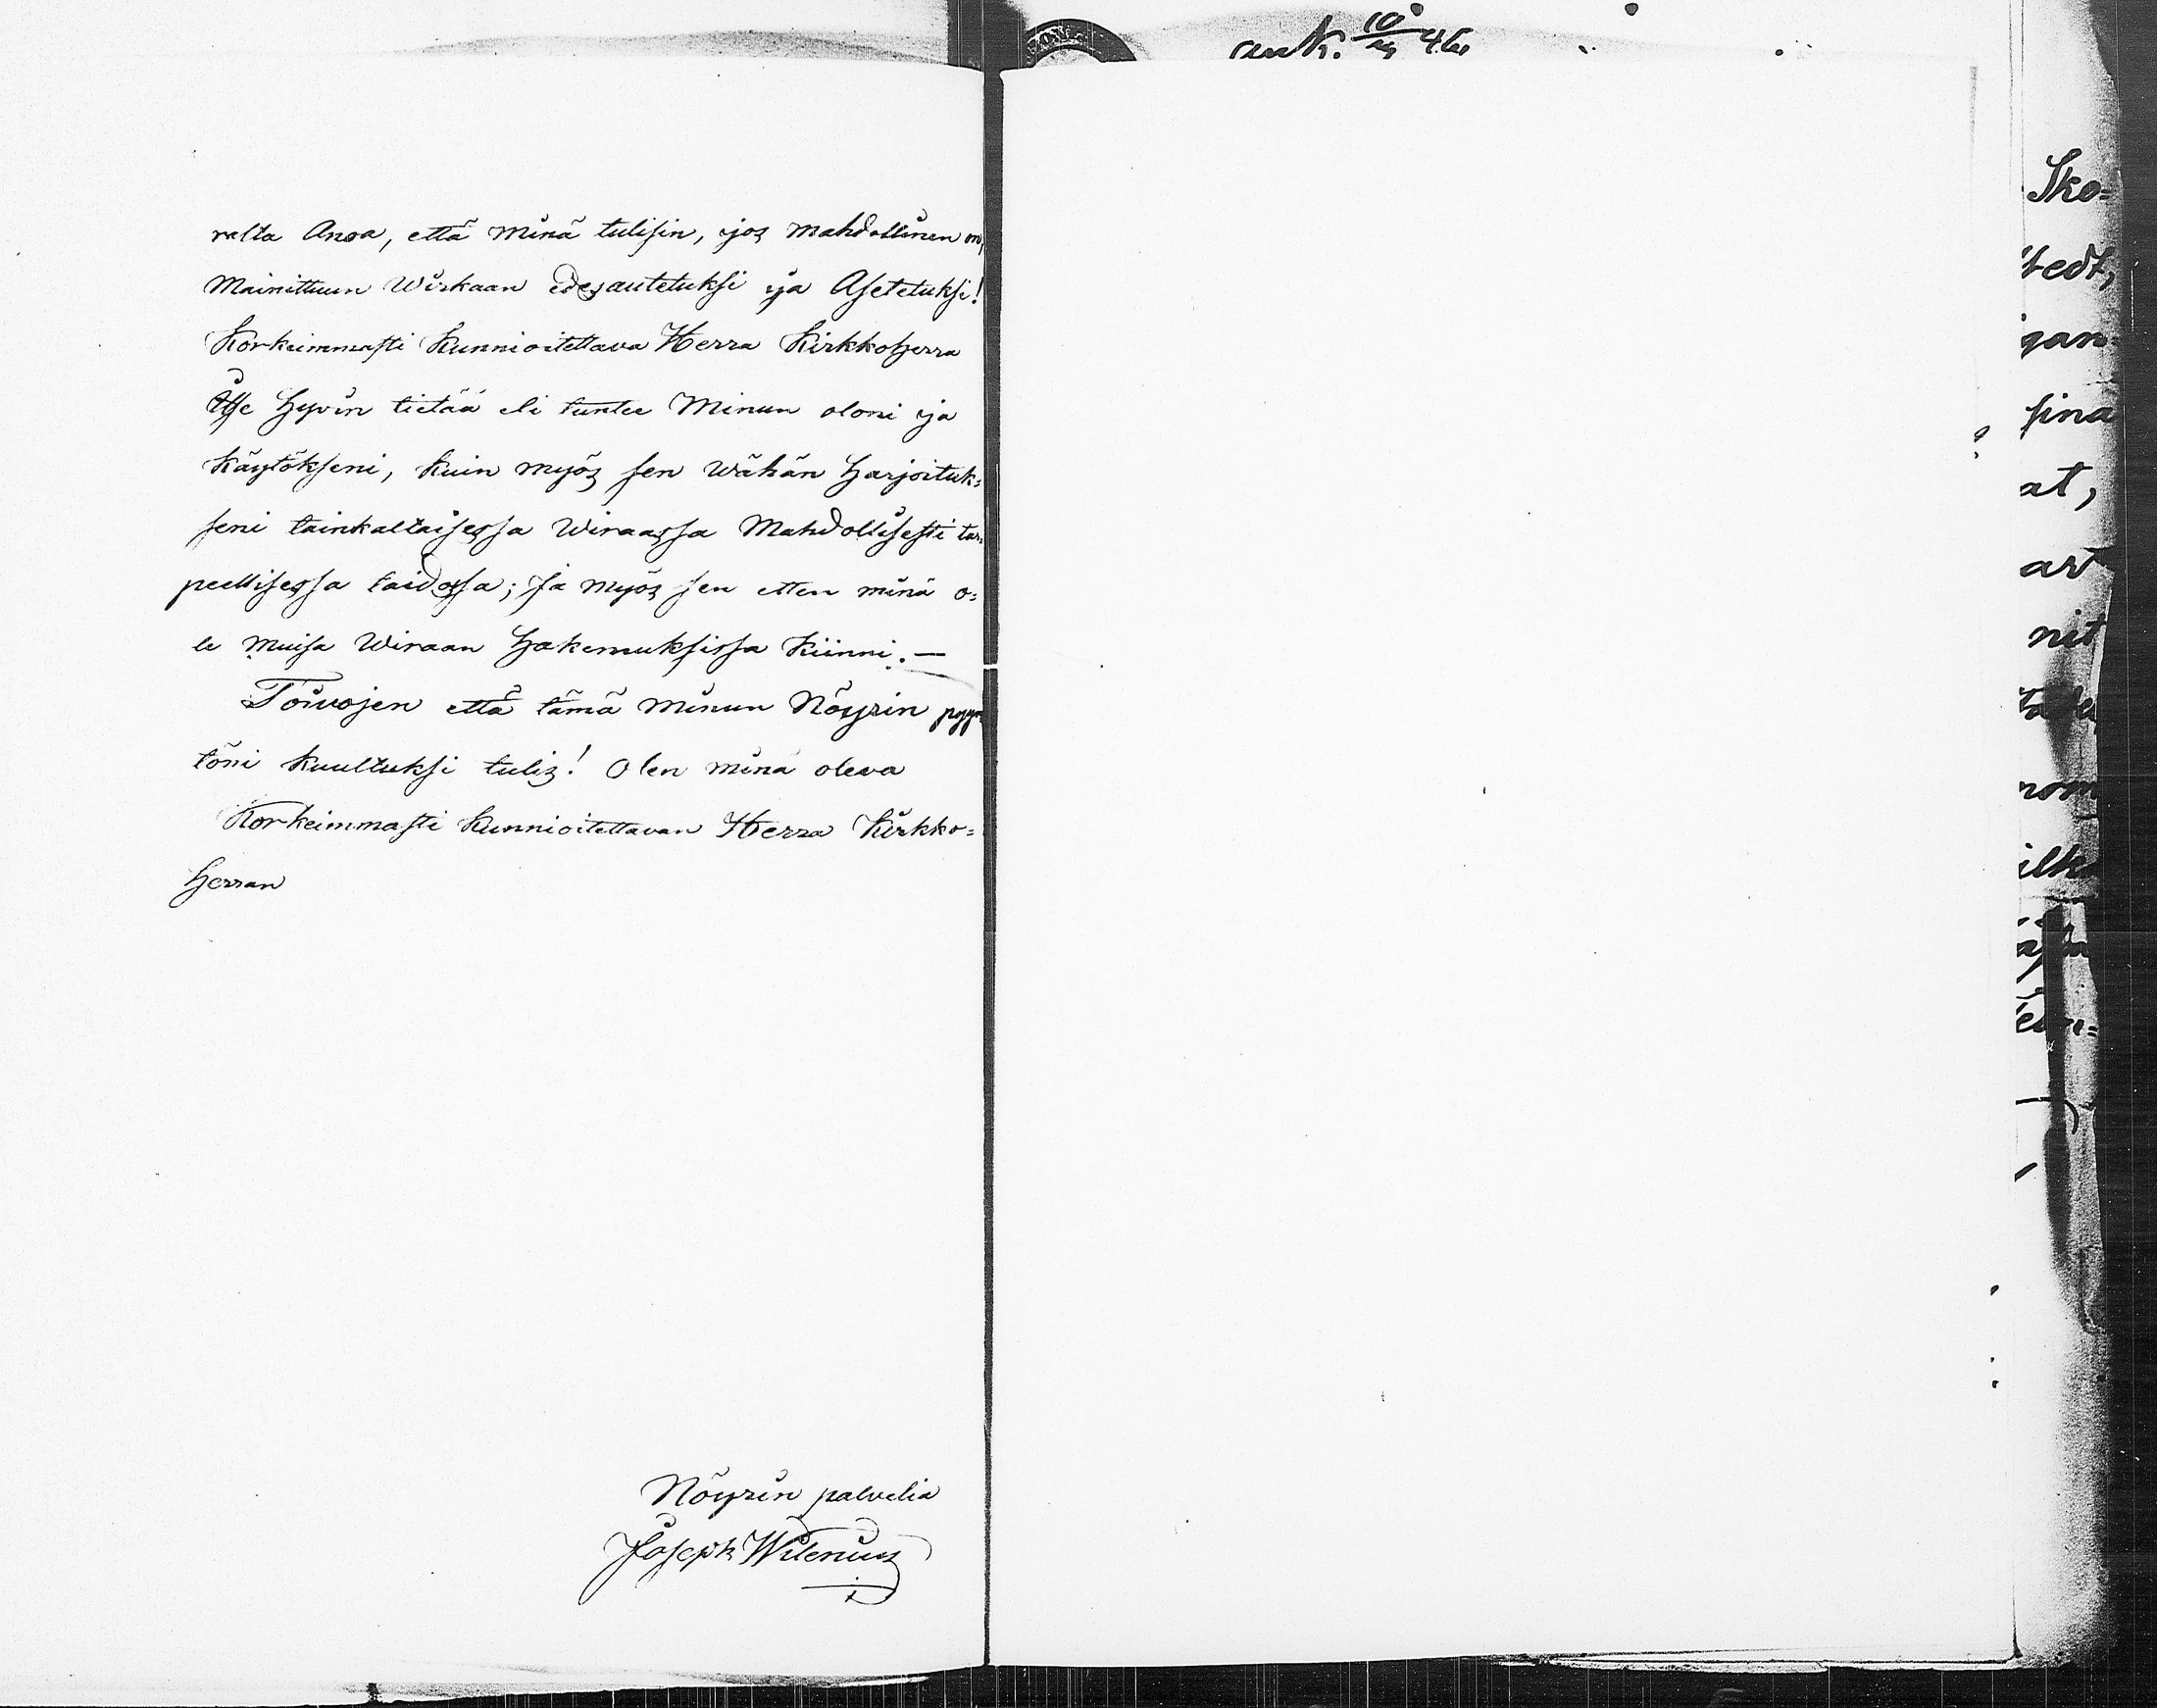 ralta Anoa, että minä tulisin, jos mahdollinen on,
Mainittuun Wirkaan edesautetuksi ja Asetetuksi!
Korkeimmasti Kunnioitettava Herra Kirkkoherra
Itse hyvin tietää eli tuntee Minun oloni ja
Käytökseni, kuin myös sen wähän harjoituk=
seni tainkaltaisessa Wiraassa Mahdollisesti tar=
peellisessa taidossa; Ja myös sen etten minä o=
le Muisa Wiraan hakemuksissa kiinni. —
Toivojen että tämä Minun Nöyrin pyyn=
töni kuultuksi tulis! Olen minä oleva
Korkeimmasti Kunnioitettavan Herra Kirkko=
herran
Nöyrin palvelia
Joseph Wilenius
ank. 10/4 46
Sko=
tedt,
gan=
sina
at,
ar
nit
nom
ilka